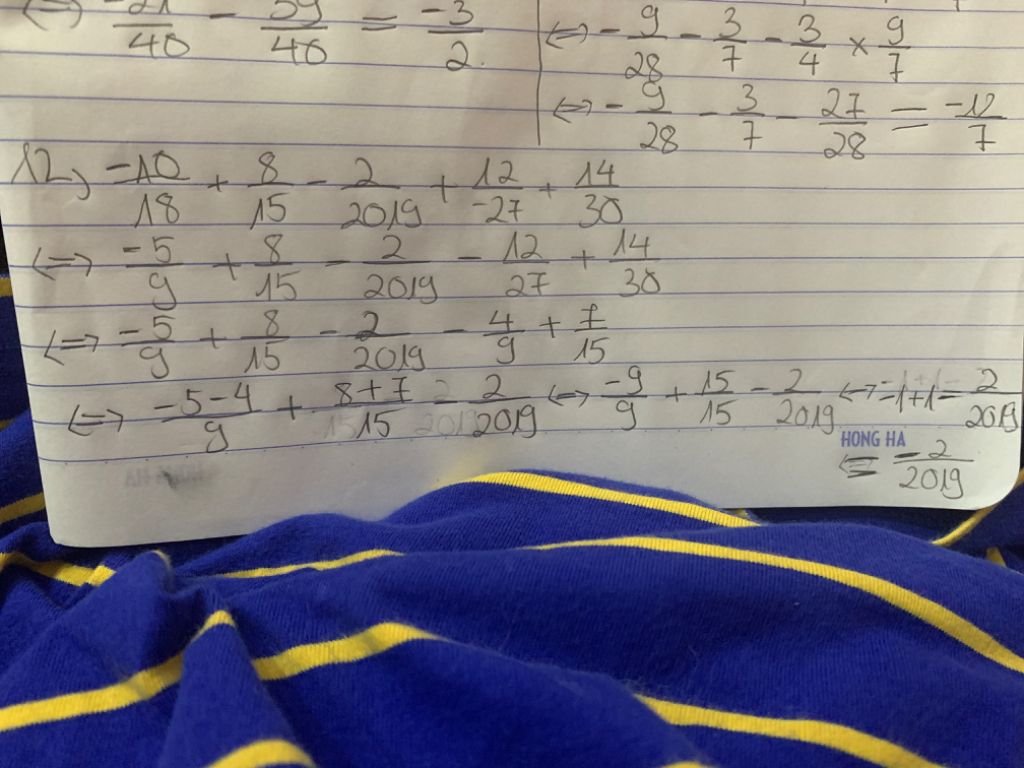 ⇔ -21/40 - 59/40 = -3/2.
⇔ - 9/28 - 3/7 - 3/4 × 9/7
⇔ - 9/28 - 3/7 - 27/28 = -12/7
12) -10/18 + 8/15 - 2/2019 + 12/-27 + 14/30
⇔ -5/9 + 8/15 - 2/2019 - 12/27 + 14/30
⇔ -5/9 + 8/15 - 2/2019 - 4/9 + 7/15
⇔ -5-4/9 + 8+7/15 - 2/2019 ⇔ -9/9 + 15/15 - 2/2019 ⇔ -1+1- 2/2019
HONG HA
= -2/2019